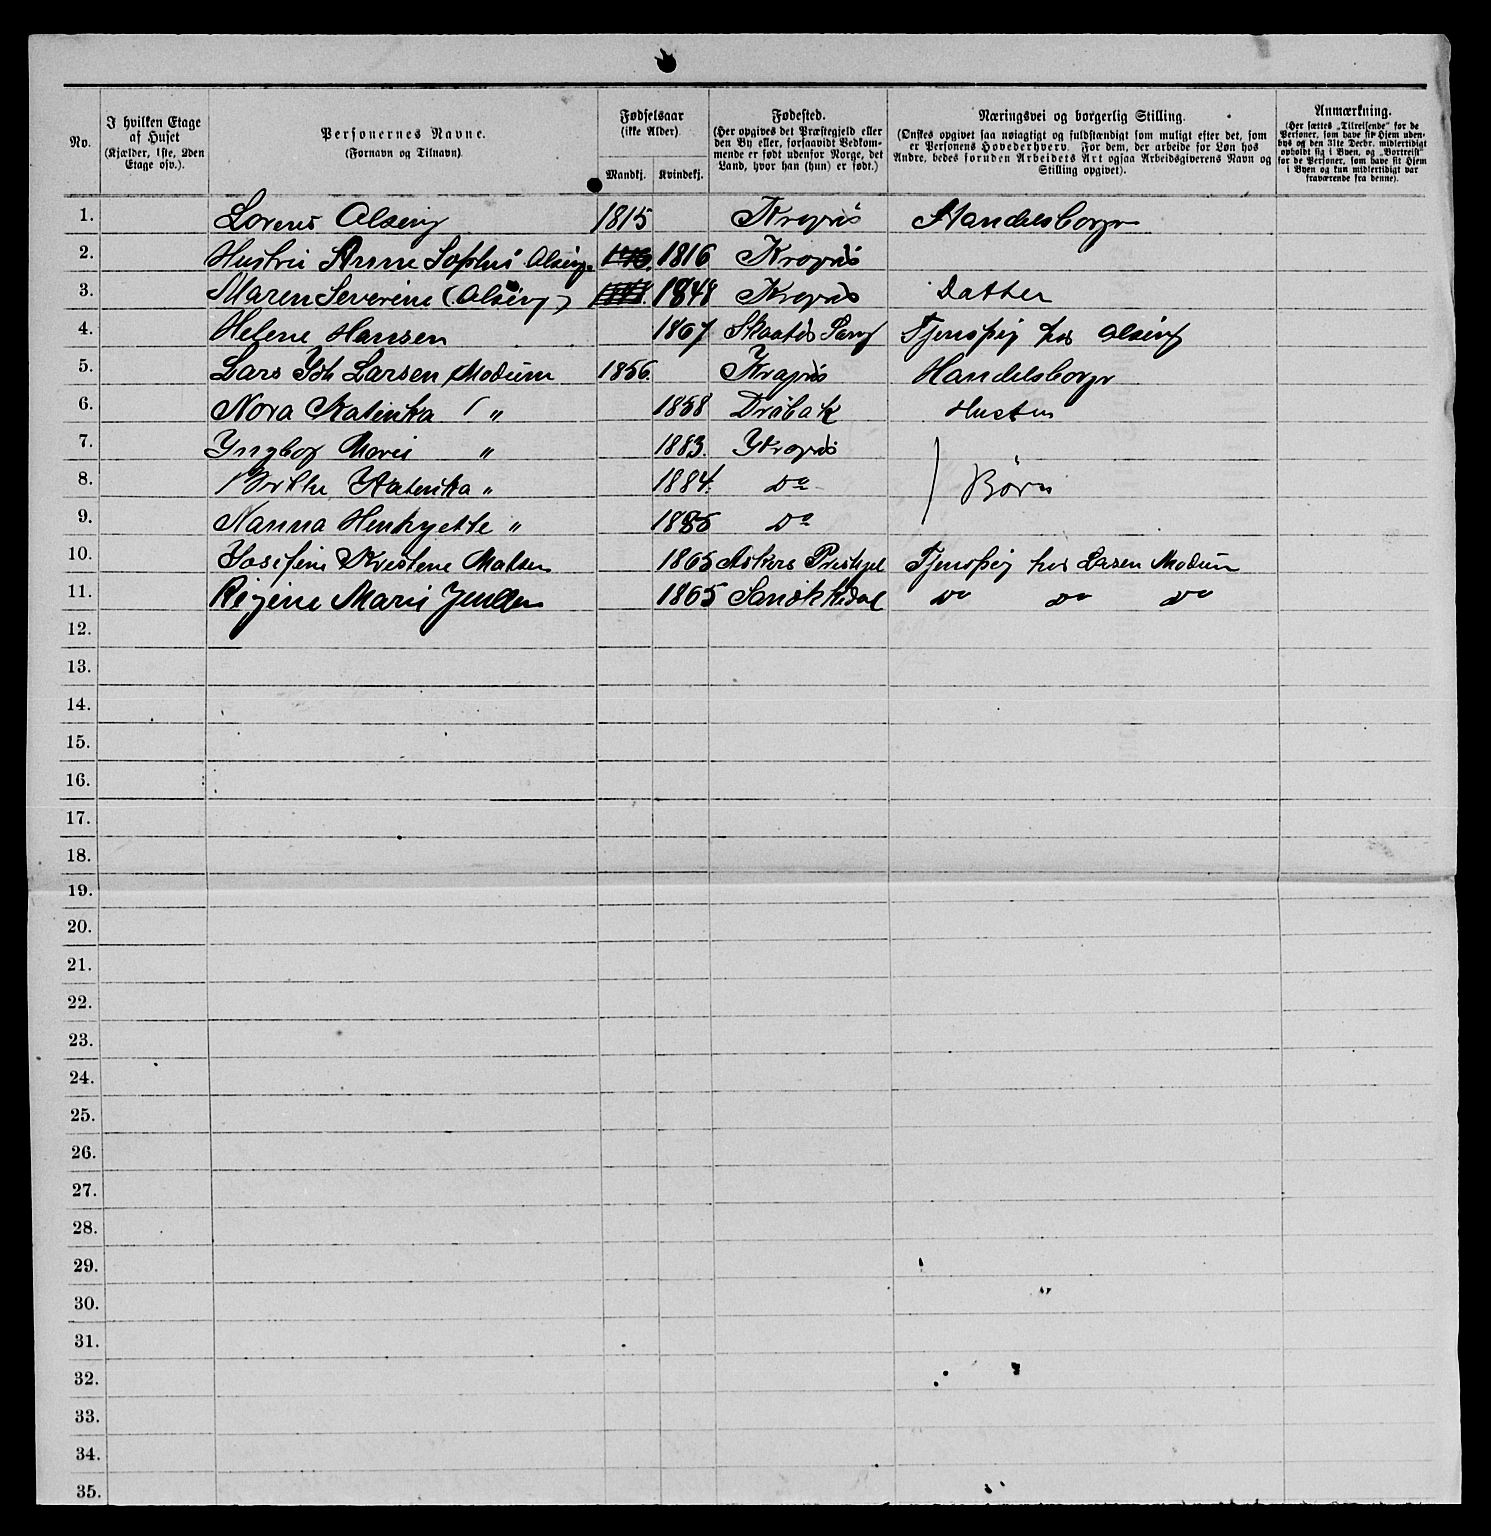 No.
I hvilken Etage af Huset (Kjælder, 1ste, 2den Etage osv.).
Personernes Navne. (Fornavn og Tilnavn)
Fødselsaar (ikke Alder)
Mandkj. Kvindekj.
Fødested. (Her opgives det Præstegjeld eller den By eller, forsaavidt Vedkommende er født udenfor Norge, det Land, hvor han (hun) er født.)
Næringsvei og borgerlig Stilling. (Ønskes opgivet saa nøiagtigt og fuldstændigt som muligt efter det, som er Personens Hovederhverv. For dem, der arbeide for Løn hos Andre, bedes foruden Arbeidets Art ogsaa Arbeidsgiverens Navn og Stilling opgivet).
Anmærkning. (Her sættes „Tilreisende“ for de Personer, som have sit Hjem udenbys og den 31te Decbr. midlertidigt opholdt sig i Byen, og „Bortreist“ for de Personer, som have sit Hjem i Byen og kun midlertidigt var fraværende fra denne).
1. Lorens Alsing 1815 Kragerø Handelsborgr
2. Hustru Anne Sophie Alsing 1816 Kragerø
3. Maren Severine (Alsing) 1848 Kragerø Datter
4. Helene Hansen 1867 Tjenspig hos Alsing
5. Lars Joh Larsen Modum 1856. Kragerø Handelsborgr
6. Nora Katinka " 1858 Drøbak Hustru
7. Yngbor Marie " 1883. Kragerø
8. Katinka " 1884. Do Børn
9. Nanna Henhyette " 1885 Do
10. Josefine Kristene Matsen 1865 Askers Prestgel Tjenspig hos Larsen Modum
11. Regine Marie Jensen 1865 Do Do Do
12.
13.
14.
15.
16.
17.
18.
19.
20.
21.
22.
23.
24.
25.
26.
27.
28.
29.
30.
31.
32.
33.
34.
35.